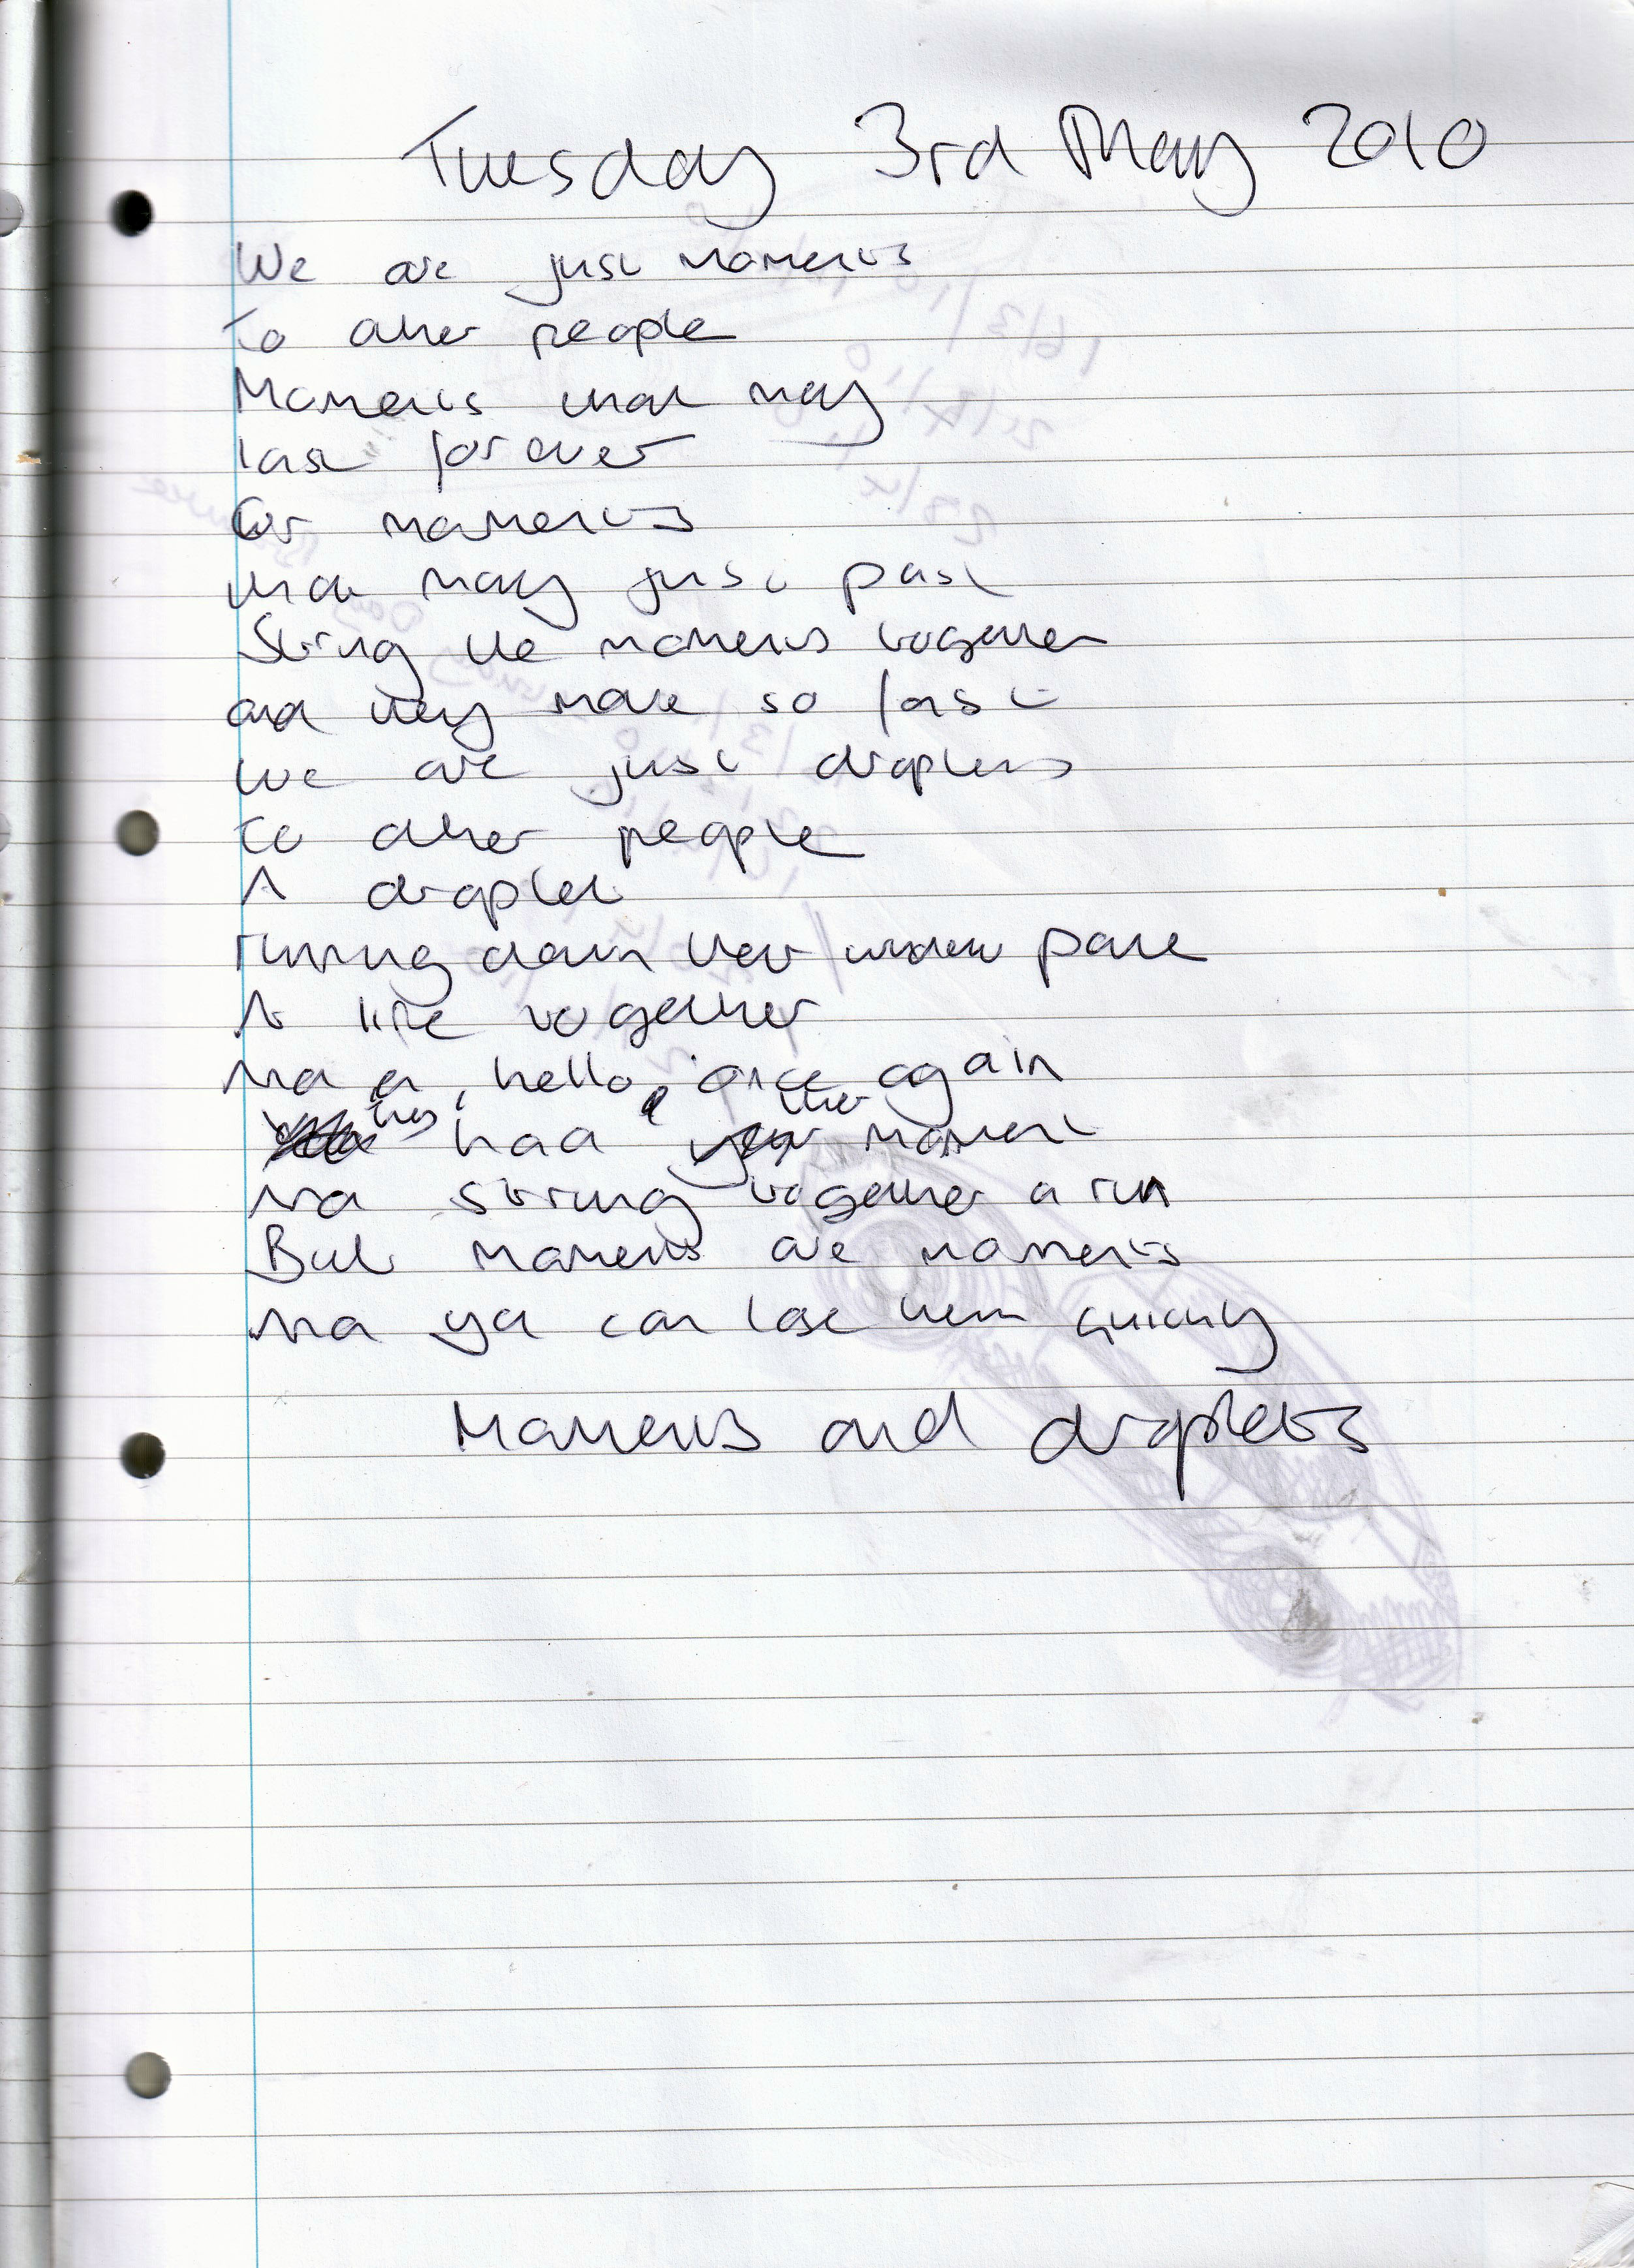 Tuesday 3rd May 2010
We are just moments
To other people
Moments that may
last forever
Or moments
that may just past
String the moments together
and they move so fast
We are just droplets
To other people
A droplet
running down their window pane
A life together
And a 'hello' once again
they had their moment
And string together a run
But moments are moments
And ya can lose them quickly
Moments and droplets